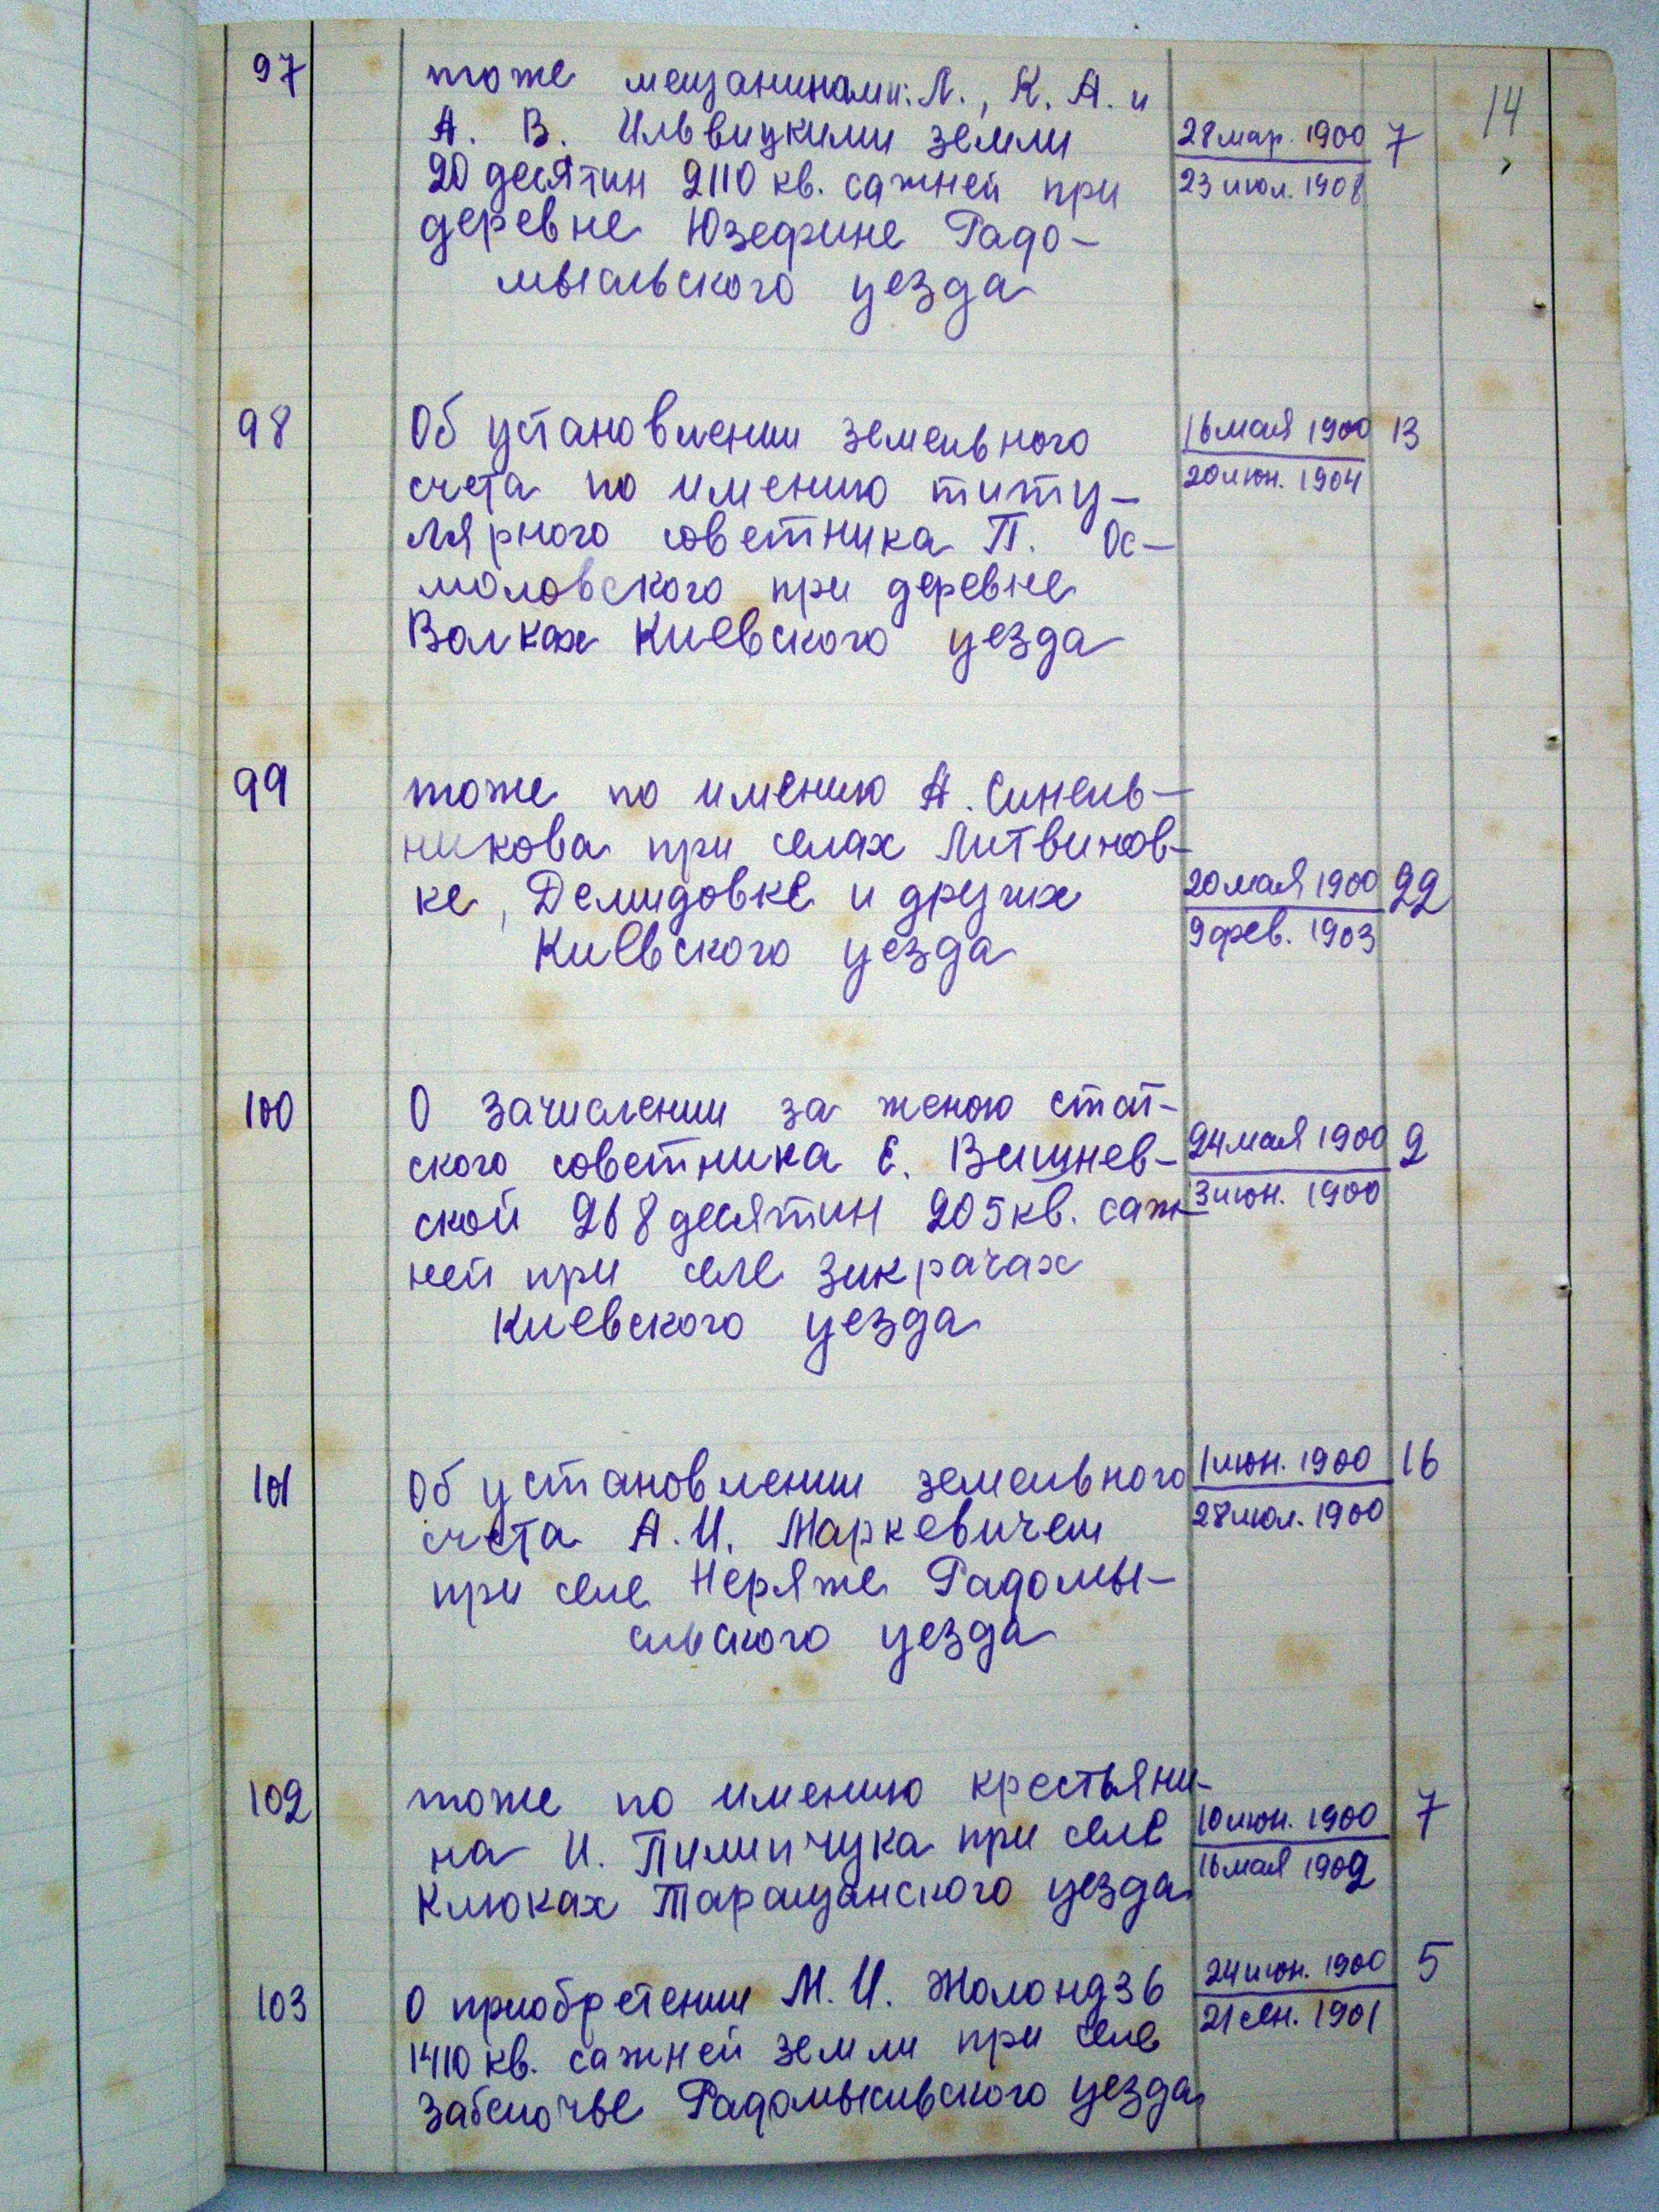 14
97 тоже мещанинами: Л., К. А. и
А. В. Ильвицкими земли 28 мар. 1900 7
20 десятин 2110 кв. сажней при 23 июл. 1908
деревне Юзефине Радо-
мысльского уезда
98 Об установлении земельного 16 мая 1900 13
счета по имению титу- 20 июн. 1904
лярного советника П. Ос-
моловского при деревне
Волках Киевского уезда
99 тоже по имению А. Синель-
никова при селах Литвинов-
ке, Демидовке и других 20 мая 1900 22
Киевского уезда 9 фев. 1903
100 О зачислении за женою стат-
ского советника Е. Вишнев- 24 мая 1900 2
ской 268 десятин 205 кв. саж- 3 июн. 1900
ней при селе Зикрачах
Киевского уезда
101 Об установлении земельного 1 июн. 1900 16
счета А. И. Маркевичем 28 июл. 1900
при селе Неряже Радомы-
сльского уезда
102 тоже по имению крестьяни-
на И. Пилипчука при селе 10 июн. 1900 7
Клюках Таращанского уезда 16 мая 1902
103 О приобретении М. И. Жолондз 6 24 июн. 1900 5
1410 кв. сажней земли при селе 21 сен. 1901
Забелочье Радомысльского уезда